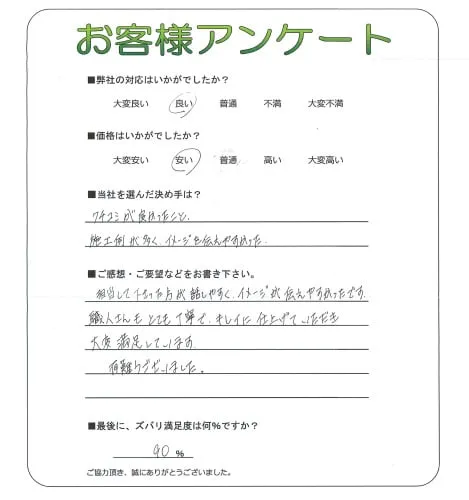 お客様アンケート
■弊社の対応はいかがでしたか？
大変良い 良い 普通 不満 大変不満
■価格はいかがでしたか？
大変安い 安い 普通 高い 大変高い
■当社を選んだ決め手は？
クチコミが良かったこと、
施工例が多く、イメージを伝えやすかった。
■ご感想・ご要望などをお書き下さい。
担当して下さった方が話しやすく、イメージが伝えやすかったです。
職人さんもとても丁寧で、キレイに仕上げていただき
大変満足しています。
有難うございました。
■最後に、ズバリ満足度は何％ですか？
90 %
ご協力頂き、誠にありがとうございました。